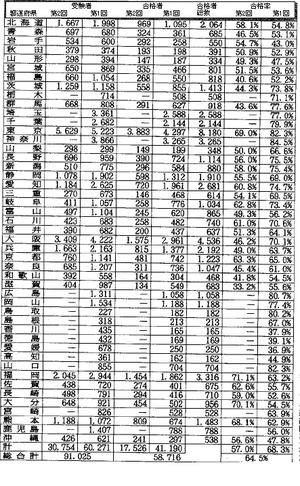 都道府県 受験者 合格者 合格者総数 合格率
第2回 第1回 第2回 第1回 第2回 第1回
北海道 1,667 1,998 969 1,095 2,064 58.1% 54.8%
青森 697 680 324 361 685 46.5% 53.1%
岩手 534 600 292 258 550 54.7% 43.0%
秋田 379 374 193 198 391 50.9% 52.9%
山形 298 394 147 187 334 49.3% 47.5%
宮城 650 869 335 466 801 51.5% 53.6%
福島 660 1,054 268 550 818 40.6% 52.2%
茨城 1,259 1,158 558 855 1,413 44.3% 73.8%
栃木 － 714 － 508 508 － 71.1%
群馬 668 808 291 627 918 43.6% 77.6%
埼玉 － 3,361 － 2,588 2,588 － 77.0%
千葉 － 2,682 － 2,144 2,144 － 79.9%
東京 5,629 5,223 3,883 4,297 8,180 69.0% 82.3%
神奈川 － 3,866 － 3,265 3,265 － 84.5%
山梨 298 299 149 199 348 50.0% 66.6%
長野 696 959 390 724 1,114 56.0% 75.5%
新潟 510 775 296 584 880 58.0% 75.4%
静岡 1,078 1,902 598 1,312 1,910 55.5% 69.0%
愛知 1,184 2,625 720 1,961 2,681 60.8% 74.7%
三重 270 673 146 468 614 54.1% 69.5%
岐阜 411 1,057 258 776 1,034 62.8% 73.4%
富山 497 1,104 245 620 865 49.3% 56.2%
石川 423 683 258 482 740 61.0% 70.6%
福井 390 682 200 437 637 51.3% 64.1%
大阪 3,409 4,222 1,575 2,961 4,536 46.2% 70.1%
兵庫 1,663 2,163 815 1,377 2,192 49.0% 63.7%
京都 760 1,141 481 742 1,223 63.3% 65.0%
奈良 685 1,207 311 736 1,047 45.4% 61.0%
和歌山 392 558 164 304 468 41.8% 54.5%
滋賀 404 987 134 549 683 33.2% 55.6%
広島 － 1,311 － 1,058 1,058 － 80.7%
岡山 － 1,534 － 1,188 1,188 － 77.4%
鳥取 － 227 － 182 182 － 80.2%
島根 － 318 － 213 213 － 67.0%
香川 － 435 － 165 165 － 37.9%
徳島 － 432 － 169 169 － 39.1%
愛媛 － 678 － 250 250 － 36.9%
高知 － 361 － 162 162 － 44.9%
山口 － 855 － 704 704 － 82.3%
福岡 2,045 2,944 1,454 1,862 3,316 71.1% 63.2%
佐賀 438 720 274 401 675 62.6% 55.7%
長崎 498 791 294 416 710 59.0% 52.6%
大分 648 921 454 502 956 70.1% 54.5%
宮崎 － 826 － 528 528 － 63.9%
熊本 1,188 1,072 809 674 1,483 68.1% 62.9%
鹿児島 － 1,407 － 788 788 － 56.0%
沖縄 426 621 241 297 538 56.6% 47.8%
計 30,754 60,271 17,526 41,190 57.0% 68.3%
総合計 91,025 58,716 64.5%